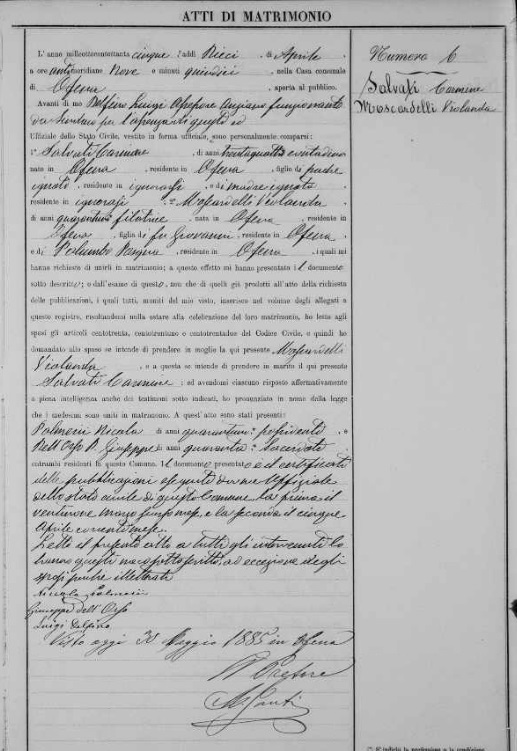 ATTI DI MATRIMONIO
Numero 6
Salvati Carmine
Moscardelli Violanda
L'anno milleottocentottanta cinque, addì Dieci di Aprile
a ore antimeridiane Nove e minuti quindici, nella Casa comunale
di Ofena aperta al pubblico.
Avanti di me Delfino Luigi Assessore Anziano funzionante
da Sindaco per
Uffiziale dello Stato Civile, vestito in forma uffiziale, sono personalmente comparsi:
1° Salvati Carmine, di anni trentaquattro contadino
nato in Ofena, residente in Ofena, figlio di padre
ignoto, residente in e di madre ignota
residente in 2° Moscardelli Violanda
di anni filatrice, nata in Ofena, residente in
Ofena, figlia di fu Giovanni, residente in Ofena
e di Palumbo, residente in Ofena, i quali mi
hanno richiesto di unirli in matrimonio; a questo effetto mi hanno presentato il documento
sotto descritto; e dall'esame di questo, non che di quelli già prodotti all'atto della richiesta
delle pubblicazioni, i quali tutti, muniti del mio visto, inserisco nel volume degli allegati a
questo registro, risultandomi nulla ostare alla celebrazione del loro matrimonio, ho letto agli
sposi gli articoli centotrenta, centotrentuno e centotrentadue del Codice Civile, e quindi ho
domandato allo sposo se intende di prendere in moglie la qui presente Moscardelli
Violanda, e a questa se intende di prendere in marito il qui presente
Salvati Carmine; ed avendomi ciascuno risposto affermativamente
a piena intelligenza anche dei testimoni sotto indicati, ho pronunziato in nome della legge
che i medesimi sono uniti in matrimonio. A quest'atto sono stati presenti:
Palmerii Nicola, di anni possidente, e
Dell'Orso D. Giuseppe, di anni quaranta, Sacerdote
entrambi residenti in questo Comune. Il documento presentato è il certificato
delle pubblicazioni eseguite da me Uffiziale
dello stato civile di questo Comune la prima il
ventinove marzo e la seconda il cinque
Aprile corrente mese.
Letto il presente atto a tutti gl'intervenuti lo
hanno questi meco sottoscritto, ad eccezione degli
sposi perché illetterati
Nicola Palmerii
Giuseppe dell'Orso
Luigi Delfino
Visto oggi 30 Maggio 1885 in Ofena
Il Pretore